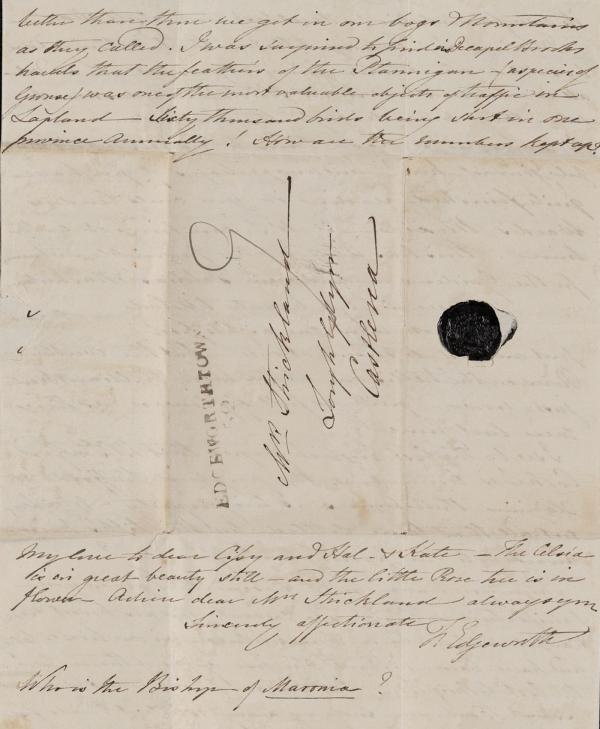 better than those we get in our bogs & Mountains
as they called. I was surprised to find in De Capel Brooks
travels that the feathers of the Ptarmigan (a species of
Grouse) was one of the most valuable objects of traffic in
Lapland — Sixty thousand birds being sent in one
province annually! How are the numbers kept up?
EDGEWORTHTOWN
Mrs Strickland
Loughglynn
Castlerea
My love to dear and Hal & Kate — The Celsia
is in great beauty still — and the little Rose tree is in
flower Adieu dear Mrs Strickland always yrs
Sincerely affectionate
Edgeworth
Who is the Bishop of Maronia?